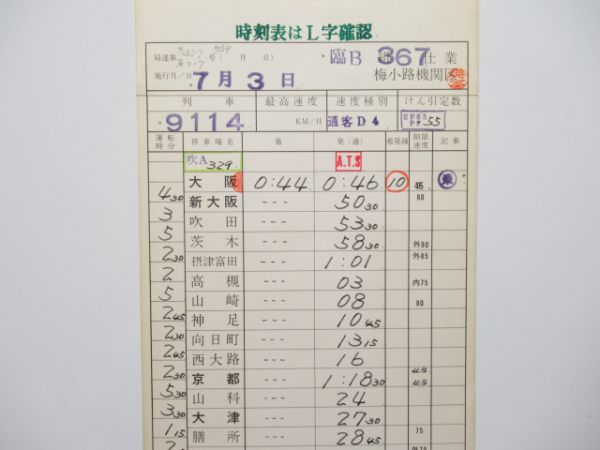 時刻表はL字確認
局達第 号( 月 日) 臨B 367 仕業
施行月/日 7月3日 梅小路機関区
列車 最高速度 速度種別 けん引定数
9114 KM/H 通客D4 55
運転時分 停車場名 着 発(通) 着発線 制限速度 記事
吹A 329 A.T.S
大阪 0:44 0:46 10 45 乗
4 30
新大阪 --- 50 30 80
3
吹田 --- 53 30
5
茨木 --- 58 30 外90
2 30
摂津富田 --- 1:01 外85
2
高槻 --- 03 内75
5
山崎 --- 08 80
2 45
神足 --- 10 45
2 30
向日町 --- 13 15
2 45
西大路 --- 16
2 30
京都 --- 1:18 30
5 30
山科 --- 24
3 30
大津 --- 27 30
1 15
膳所 --- 28 45 75